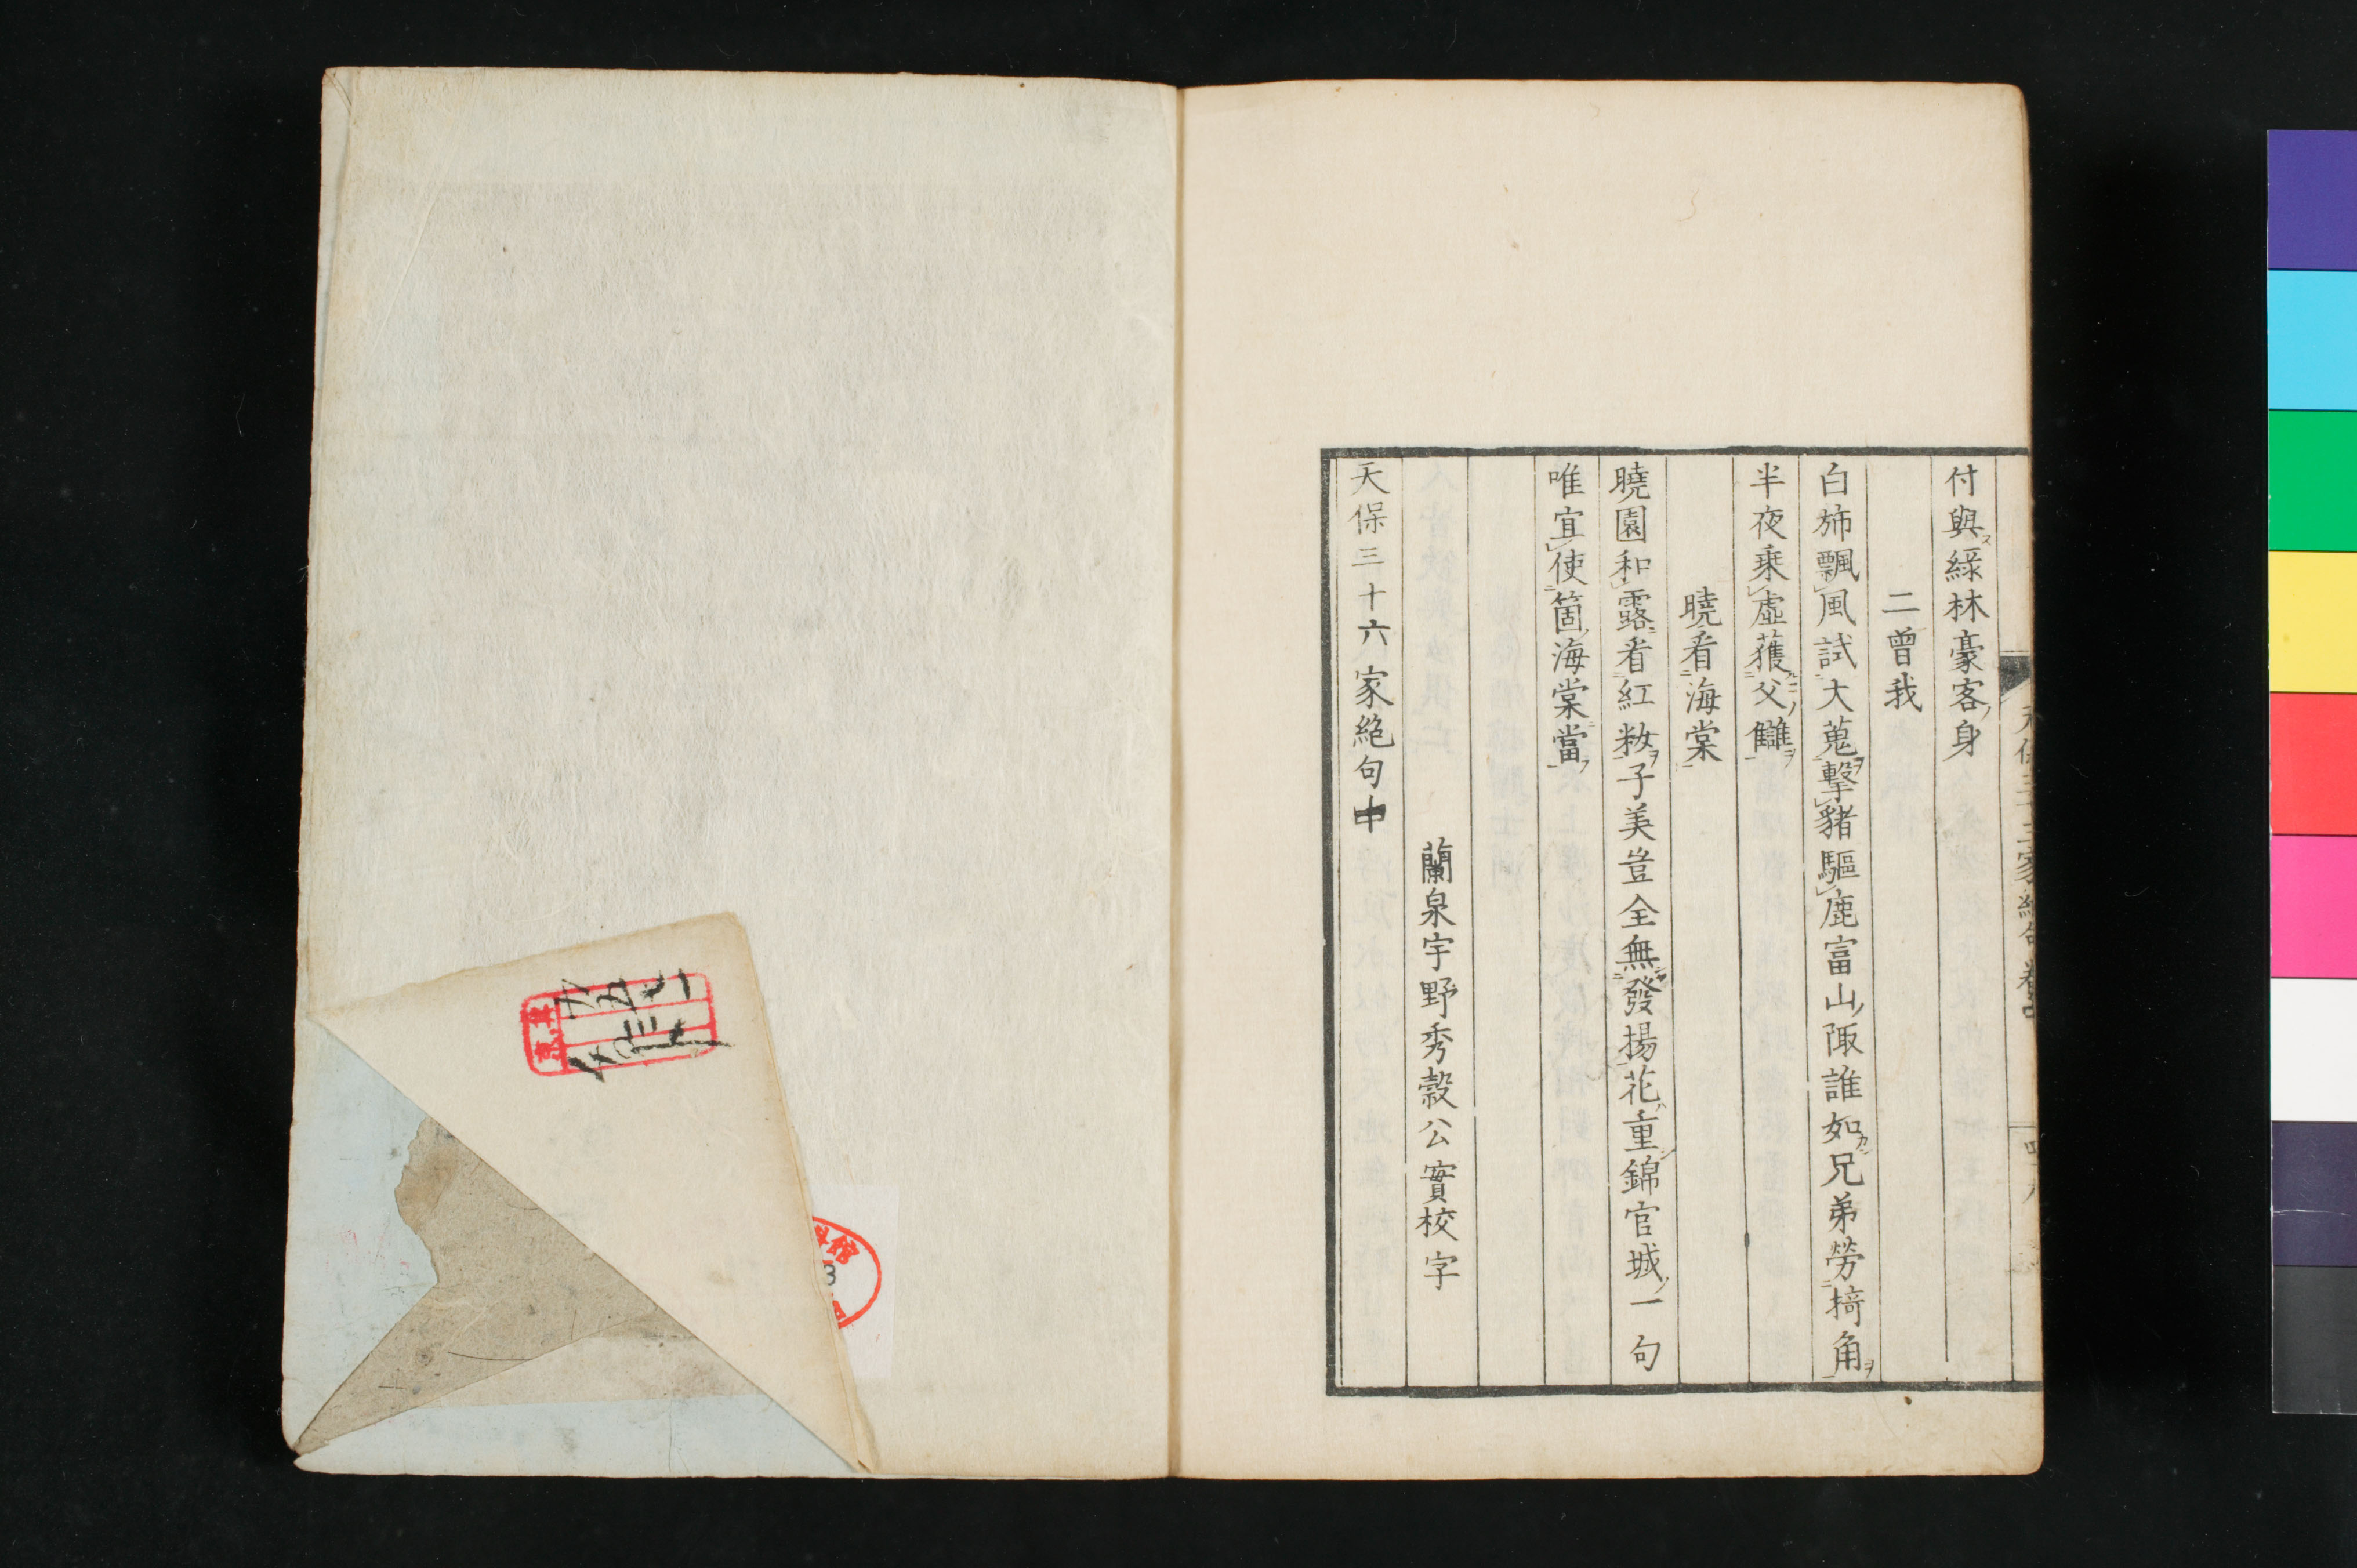 付與綠林豪客身
二曾我
白斾飄風試大蒐擊豬驅鹿富山陬誰如兄弟勞掎角
半夜乘虛獲父讎
曉看海棠
曉園和露看紅妝子美豈全無發揚花重錦官城一句
唯宜使箇海棠當
蘭泉宇野秀穀公實校字
天保三十六家絕句中